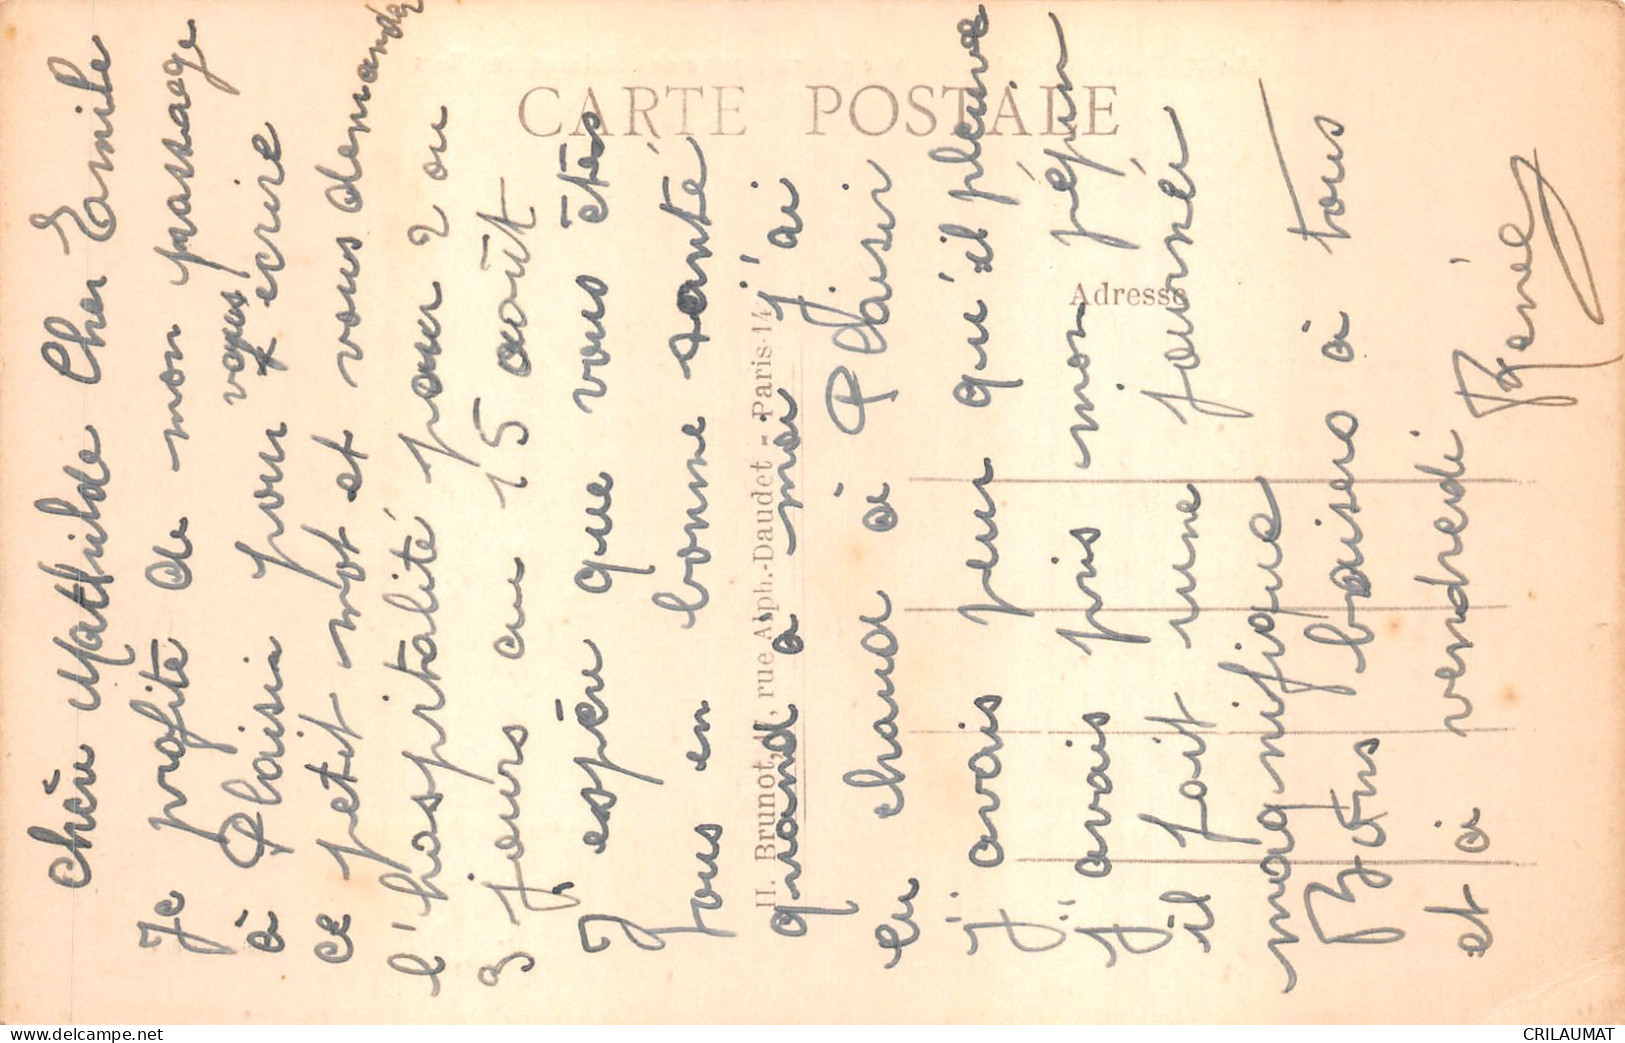 CARTE POSTALE
Adresse
H. Brunot, 1, rue Alph.-Daudet - Paris-14
Chère Mathilde Cher Emile
Je profite de mon passage
à Plaisir pour vous écrire
ce petit mot et vous demander
l'hospitalité pour 2 ou
3 jours au 15 août
J'espère que vous êtes
tous en bonne santé
quand à moi j'ai
eu chaud à Plaisir
J'avais peur qu'il pleuve
J'avais pris mon pépin
il fait une journée
magnifique
Bons baisers à tous
et à vendredi
Renée
www.delcampe.net
CRILAUMAT